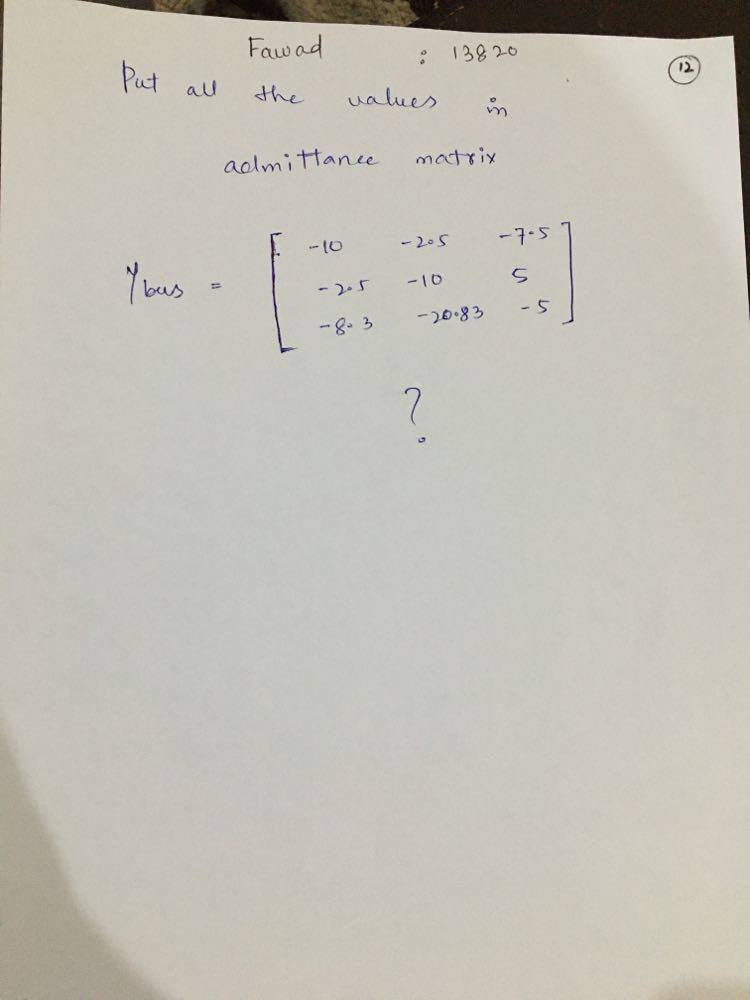 Fawad : 13820
12
Put all the values in
admittance matrix
Ybus = [ -10 -2.5 -7.5 ]
-2.5 -10 5
-8.3 -20.83 -5
?